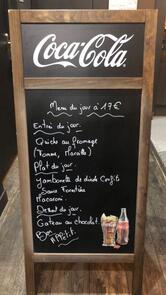 Coca-Cola
Menu du jour à 17€
Entrée du jour
Quiche au fromage
(Tomme, Maroille)
Plat du jour
Jambonette de dinde Confit
Sauce Forestière
Macaroni.
Dessert du jour.
Gateau au chocolat.
Bon APPETIT.